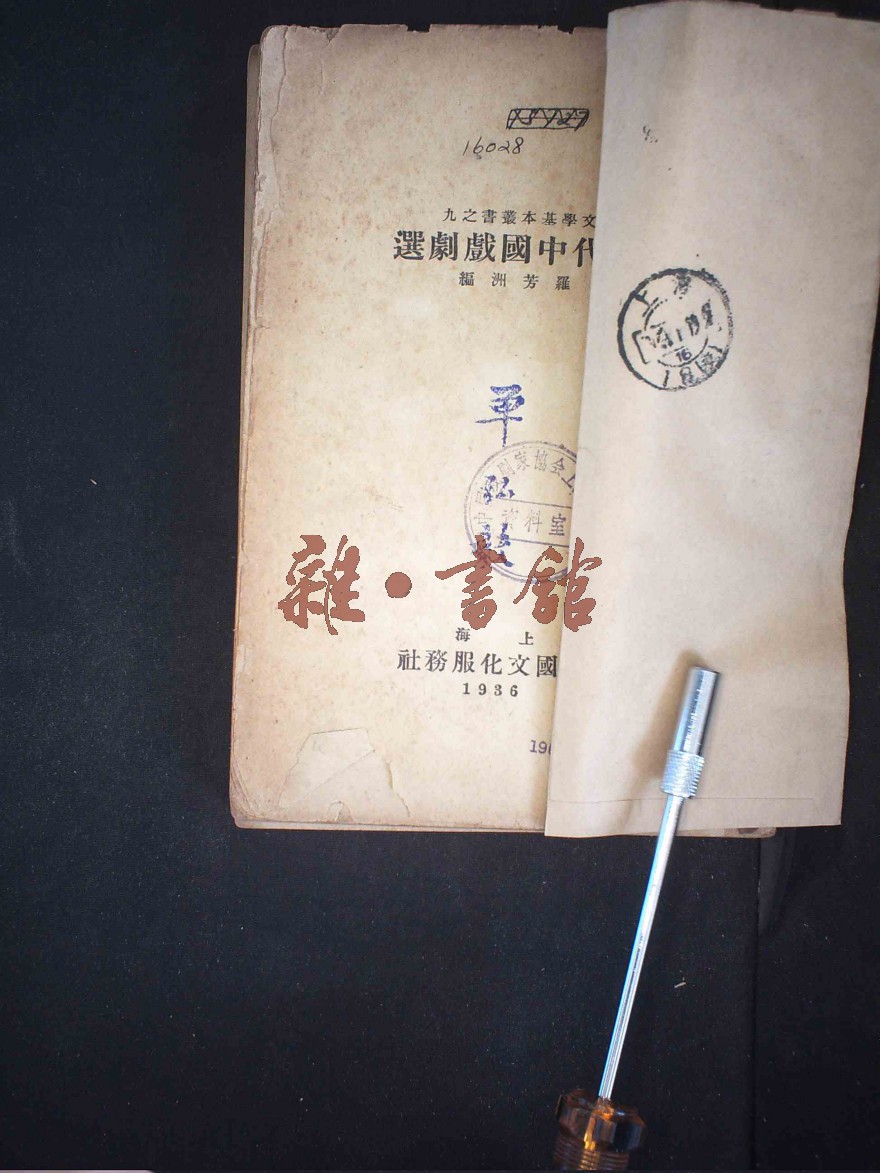 16028
文學基本叢書之九
代中國戲劇選
羅芳洲編
平
劇家協会上
資料室
雜·書館
上海
國文化服務社
1936
196
上海
16